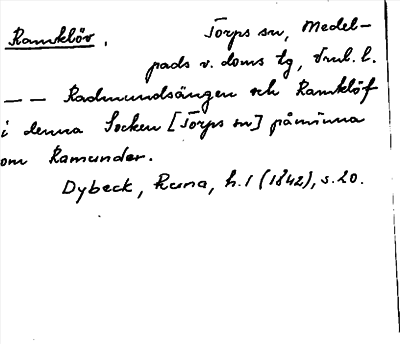 Ramklöv. Torps sn, Medel-
pads v. doms tg, Vnl. l.
— — Radmundsängen och Ramklöf
i denna Socken [Torps sn] påminna
om Ramunder.
Dybeck, Runa, h. 1 (1842), s. 20.